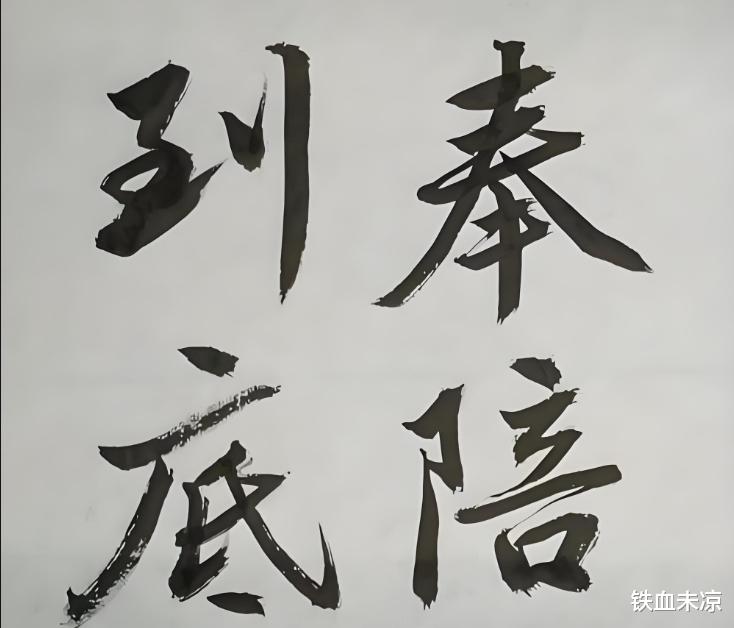 奉陪
到底
铁血未凉